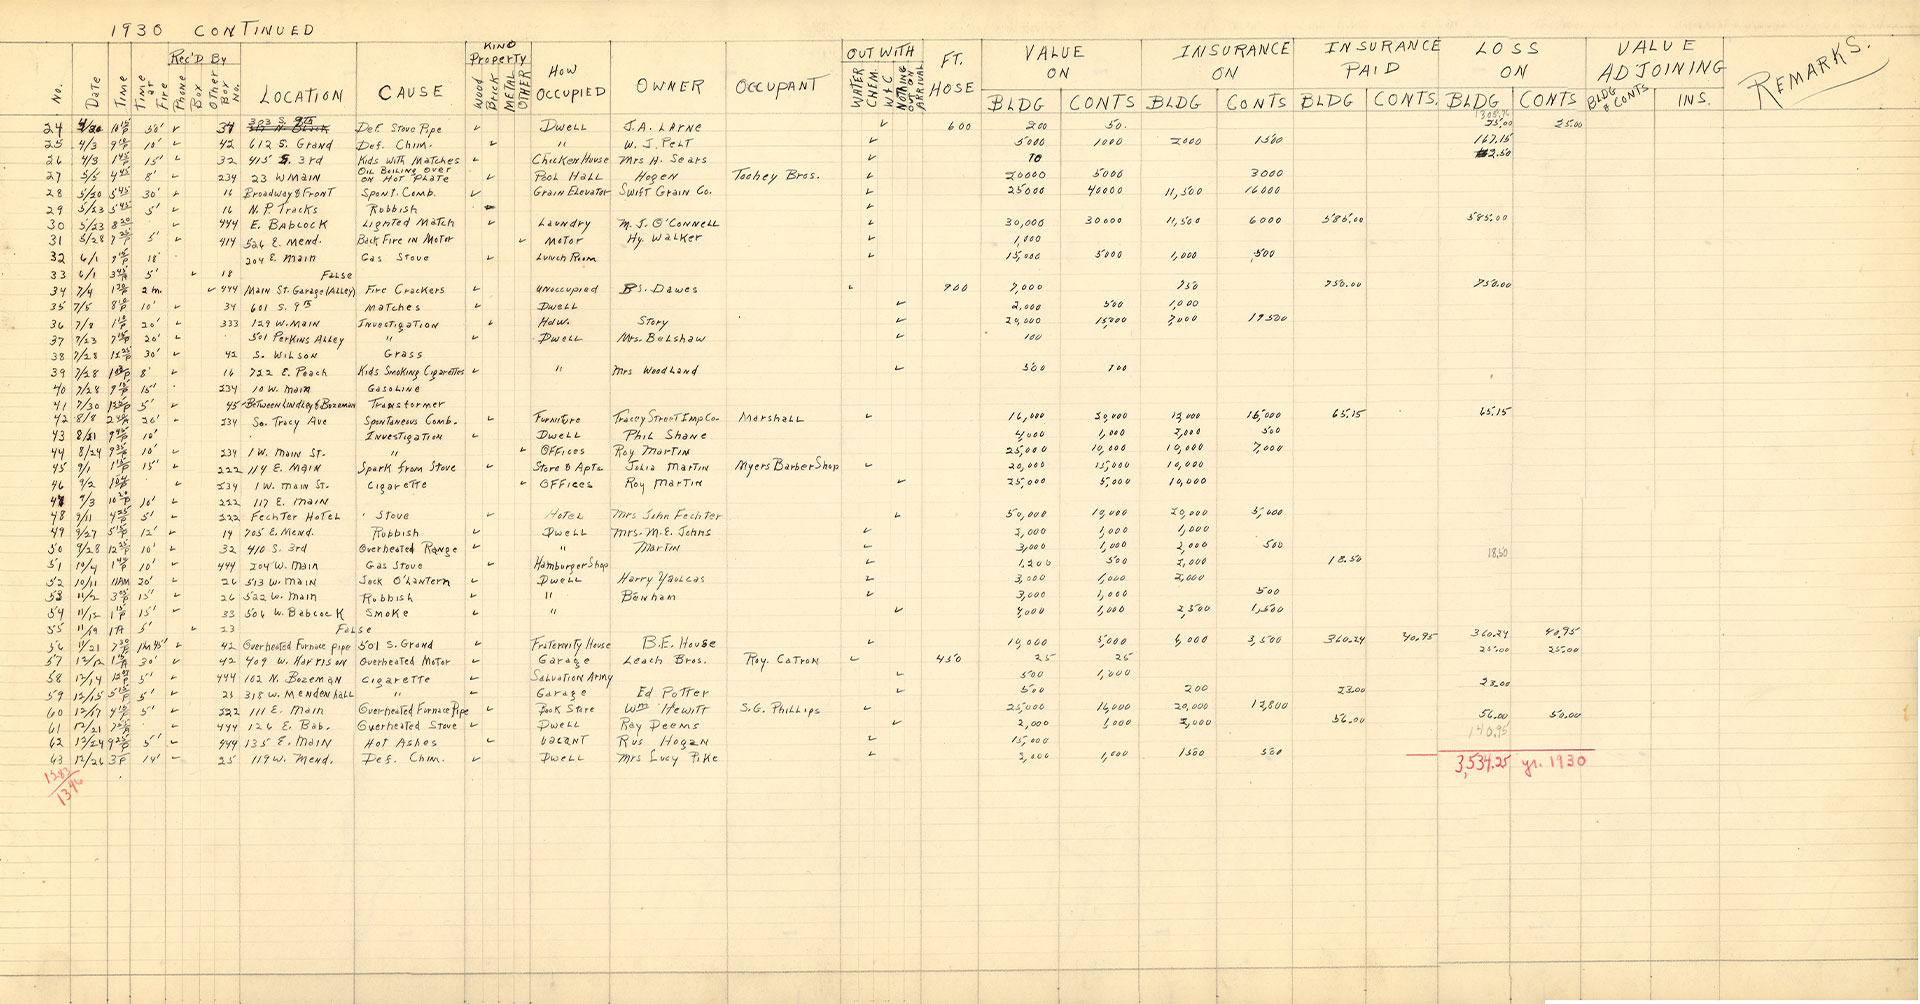 1930 CONTINUED
No. Date Time Time at Fire Rec'd By Phone Box Other Box No. LOCATION CAUSE KIND Property Wood Brick METAL OTHER HOW OCCUPIED OWNER OCCUPANT OUT WITH WATER CHEM. W & C NOTHING OUT ON ARRIVAL FT. HOSE VALUE ON BLDG CONTS INSURANCE ON BLDG CONTS INSURANCE PAID BLDG CONTS. LOSS ON BLDG CONTS VALUE ADJOINING BLDG & CONTS INS. REMARKS.
24 4/20 50' 34 303 S. 9th Def. Stove Pipe Dwell J.A. Larne 600 200 50. 25.00 25.00
25 4/3 10' 42 612 S. Grand Def. Chim. " W. J. Pelt 5000 1000 2000 1500 167.15
26 4/3 15' 32 415 S. 3rd Kids With Matches Chicken House Mrs H. Sears 70 2.50
27 5/5 8' 234 23 W Main Oil Boiling Over on Hot Plate Pool Hall Hogen Toohey Bros. 20000 5000 3000
28 5/20 30' 16 Broadway & Front Spont. Comb. Grain Elevator Swift Grain Co. 25000 40000 11,500 16000
29 5/23 5' 16 N.P. Tracks Rubbish
30 5/23 444 E. Babcock Lighted Match Laundry M.J. O'Connell 30,000 30000 11,500 6000 585.00 585.00
31 5/28 5' 414 526 E. Mend. Back Fire in Motor Motor Hy. Walker 1,000
32 6/1 18' 204 E. Main Gas Stove Lunch Room 15,000 5000 1,000 500
33 6/1 5' 18 False
34 7/4 2 m. 444 Main St. Garage (Alley) Fire Crackers Unoccupied Dawes 900 7,000 750 750.00 750.00
35 7/5 10' 34 601 S. 9th Matches Dwell 2,000 500 1,000
36 7/8 20' 333 129 W. Main Investigation Hdw. Story 20,000 15,000 7,000 19500
37 7/23 20' 501 Perkins Alley " Dwell Mrs. Bulshaw 100
38 7/28 30' 42 S. Wilson Grass
39 7/28 8' 16 722 E. Peach Kids Smoking Cigarettes " Mrs Woodland 500 100
40 7/28 15' 234 10 W. Main Gasoline
41 7/30 5' 45 Between Lindley & Bozeman Transformer
42 8/8 20' 234 So. Tracy Ave Spontaneous Comb. Furniture Tracey Street Imp Co. Marshall 16,000 20,000 12,000 16,000 65.15 65.15
43 8/21 10' Investigation Dwell Phil Shane 4,000 1,000 2,000 500
44 8/24 10' 234 1 W. Main St. " Offices Roy Martin 25,000 10,000 10,000 7,000
45 9/1 15' 222 114 E. Main Spark from Stove Store & Apts Julia Martin Myers Barber Shop 20,000 15,000 10,000
46 9/2 234 1 W. Main St. Cigarette Offices Roy Martin 25,000 5,000 10,000
47 9/3 10' 222 117 E. Main
48 9/11 5' 222 Fechter Hotel Stove Hotel Mrs John Fechter 50,000 10,000 20,000 5,000
49 9/27 12' 14 705 E. Mend. Rubbish Dwell Mrs. M.E. Johns 2,000 1,000 1,000
50 9/28 10' 32 410 S. 3rd Overheated Range " Martin 3,000 1,000 2,000 500
51 10/4 10' 444 204 W. Main Gas Stove Hamburger Shop 1,200 500 2,000 18.50 18.50
52 10/11 11AM 20' 26 513 W. Main Jack O'Lantern Dwell Harry 3,000 1,000 2,000
53 11/2 15' 26 522 W. Main Rubbish " Benham 3,000 1,000 500
54 11/12 15' 33 506 W. Babcock Smoke " 4,000 1,000 2,500 1,500
55 11/19 1A 5' 23 False
56 11/21 1 h 45' 42 Overheated Furnace Pipe 501 S. Grand Fraternity House B.E. House 10,000 5,000 6,000 3,500 360.24 40.95 360.24 40.95
57 12/12 30' 42 409 W. Harrison Overheated Motor Garage Leach Bros. Roy. Catron 450 25 25 25.00 25.00
58 12/14 5' 444 102 N. Bozeman Cigarette Salvation Army 500 1,000
59 12/15 5' 25 318 W. Mendenhall " Garage Ed Potter 500 200 23.00 23.00
60 12/17 5' 222 111 E. Main Overheated Furnace Pipe Book Store Wm Hewitt S.G. Phillips 25,000 16,000 20,000 12,800
61 12/21 444 126 E. Bab. Overheated Stove Dwell Ray Deems 2,000 1,000 2,000 56.00 56.00 50.00
62 12/24 5' 444 135 E. Main Hot Ashes Vacant Rus Hogan 15,000 140.95
63 12/26 3P 14' 25 119 W. Mend. Def. Chim. Dwell Mrs Lucy Pike 2,000 1,000 1500 500
3,534.25 yr. 1930
1346